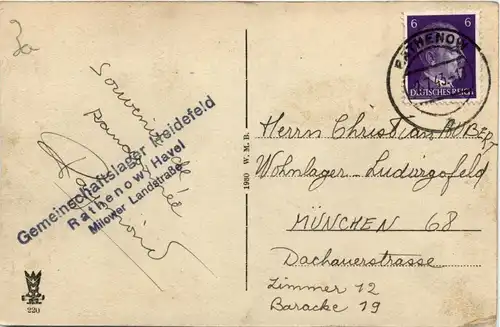 30
Souvenir de
randonnée
Raymond
Gemeinschaftslager Heidefeld
Rathenow/Havel
Milower Landstraße
220
1980 W.M.B.
6 6
DEUTSCHES REICH
RATHENOW
Herrn Christian AUBERT
Wohnlager Ludwigsfeld
MÜNCHEN 68
Dachauerstrasse
Zimmer 12
Baracke 19